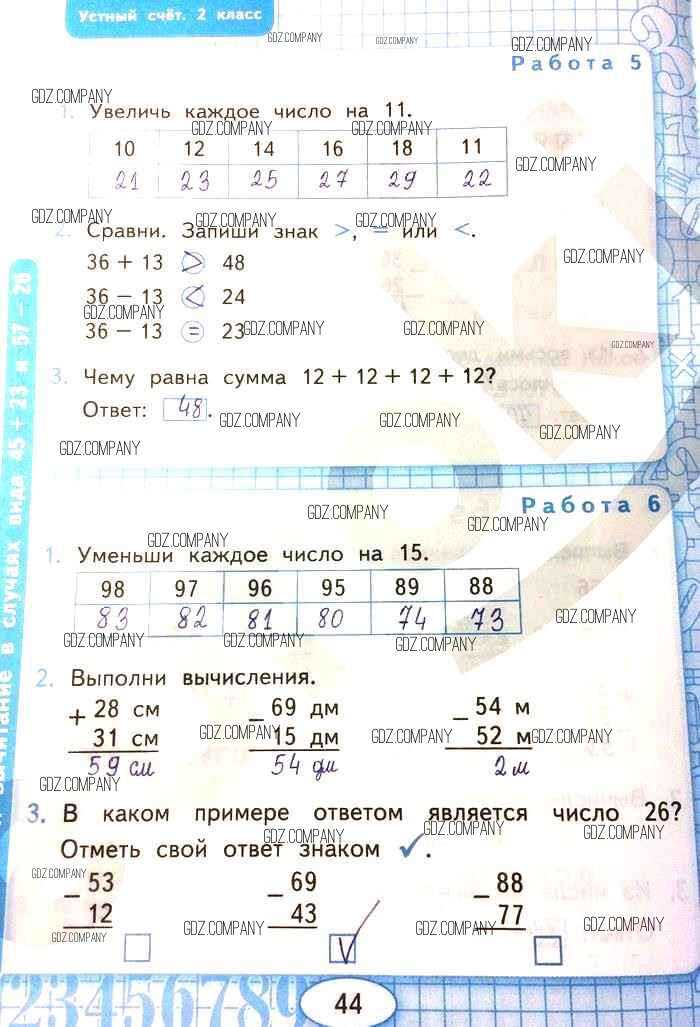 Устный счёт. 2 класс
Работа 5
1. Увеличь каждое число на 11.
10 12 14 16 18 11
21 23 25 27 29 22
2. Сравни. Запиши знак >, = или <.
36 + 13 > 48
36 − 13 < 24
36 − 13 = 23
3. Чему равна сумма 12 + 12 + 12 + 12?
Ответ: 48.
Работа 6
1. Уменьши каждое число на 15.
98 97 96 95 89 88
83 82 81 80 74 73
2. Выполни вычисления.
+ 28 см − 69 дм − 54 м
31 см 15 дм 52 м
59 см 54 дм 2 м
3. В каком примере ответом является число 26?
Отметь свой ответ знаком ✓.
− 53 − 69 − 88
12 43 77
V
44
123456789
вычитание в случаях вида 45 + 23 и 57 − 26
GDZ.COMPANY